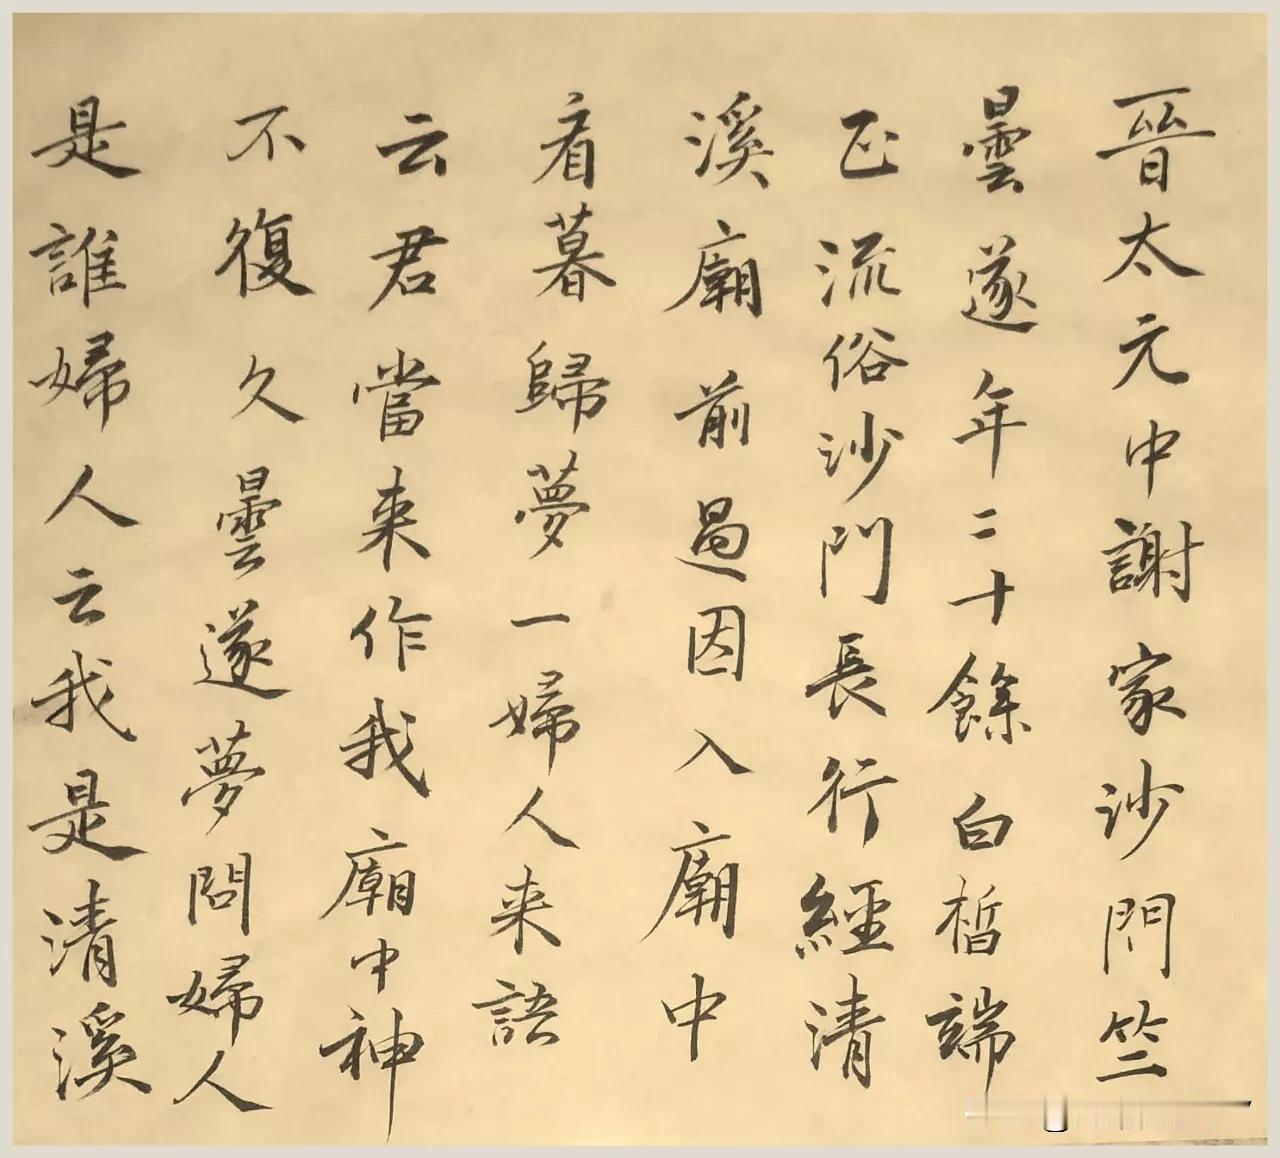 晉太元中謝家沙門竺
曇遂年二十餘白皙端
正流俗沙門長行經清
溪廟前過因入廟中
看暮歸夢一婦人来語
云君當来作我廟中神
不復久曇遂夢問婦人
是誰婦人云我是清溪